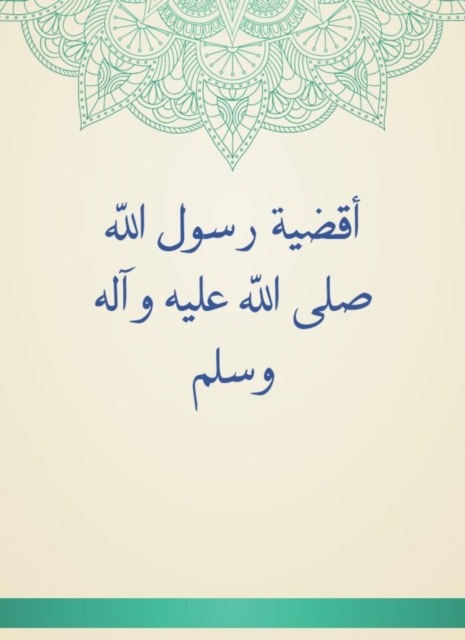 أقضية رسول الله
صلى الله عليه وآله
وسلم